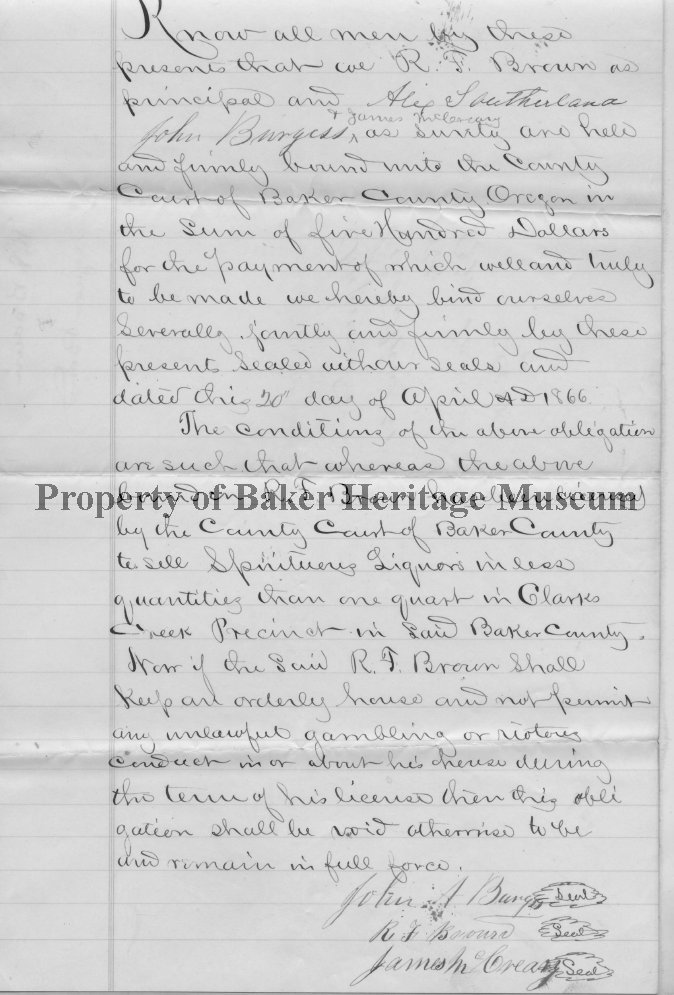 Know all men by these
presents that we R. F. Brown as
principal and Alex Southerland
+ James McCreary
John Burgess ^ as surety are held
and firmly bound unto the County
Court of Baker County Oregon in
the Sum of five Hundred Dollars
for the payment of which well and truly
to be made we hereby bind ourselves
Severally, Jointly and firmly by these
present Sealed with our seals and
dated this 20" day of April AD 1866
The conditions of the above obligation
are such that whereas the above
bounden R. F. Brown has been licensed
Property of Baker Heritage Museum
by the County Court of Baker County
to sell Spirituous Liquors in less
quantities than one quart in Clarks
Creek Precinct in Said Baker County.
Now if the Said R. F. Brown Shall
Keep an orderly house and not permit
any unlawful gambling or riotous
conduct in or about his house during
the term of his license then this obli
gation shall be void otherwise to be
and remain in full force.
John A Burgess Seal
R F Brown Seal
James McCreary Seal